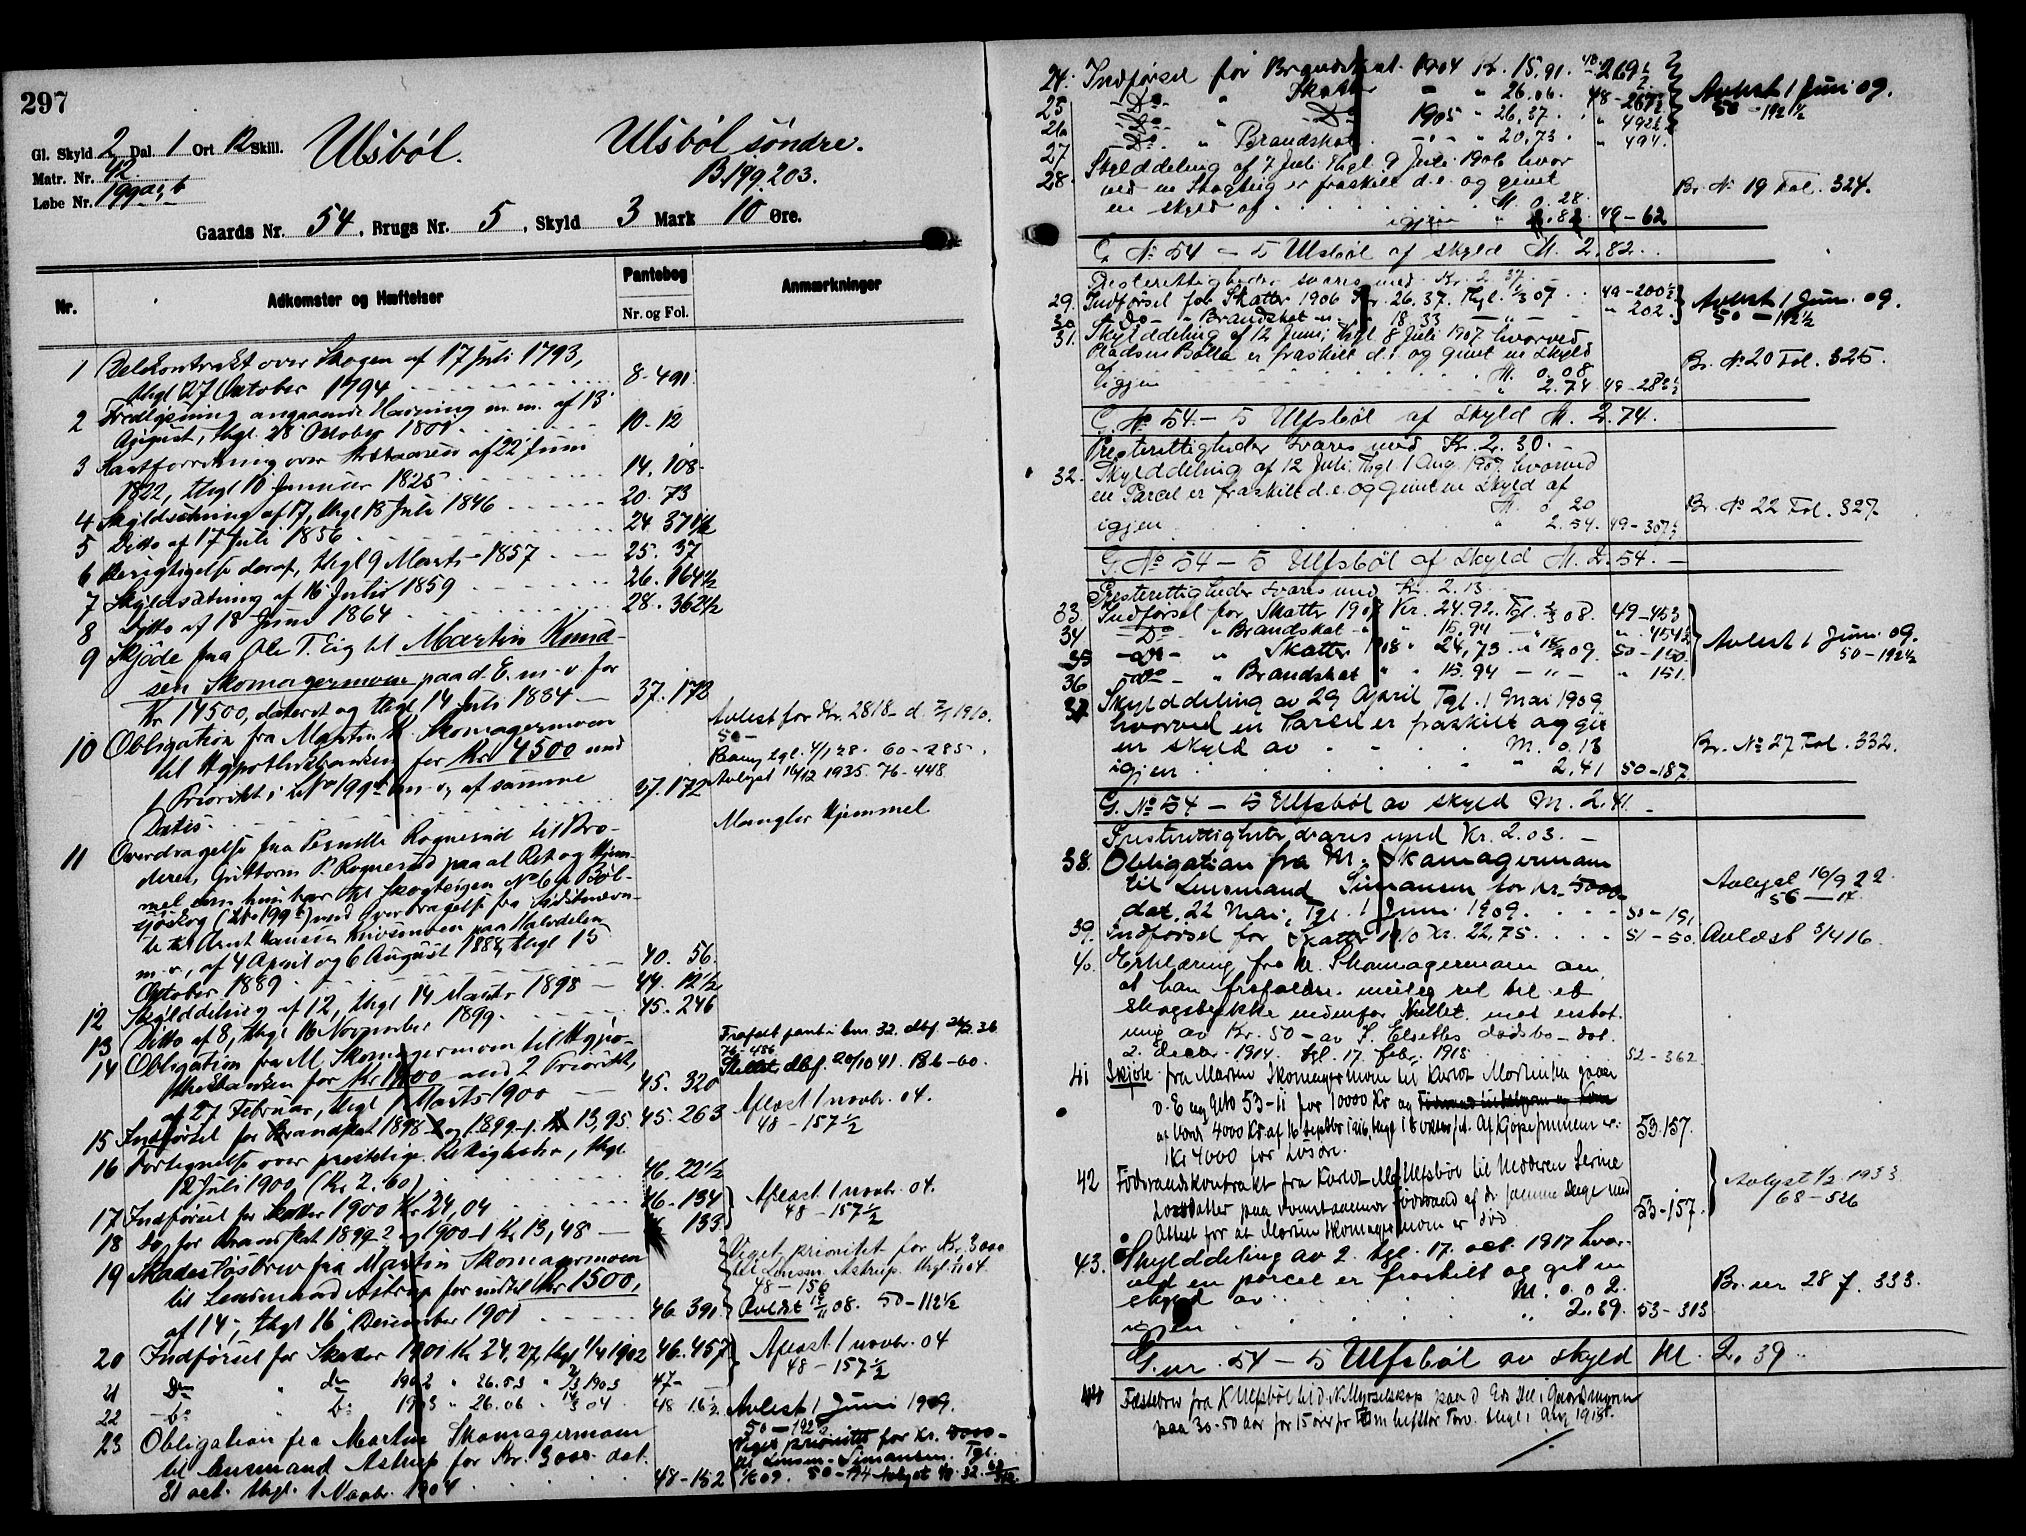 297
Gl. Skyld 2 Dal. 1 Ort 12 Skill.
Matr. Nr. 42.
Løbe Nr. 199
Ulsböl.
Ulsböl söndre.
B. 199. 203.
Gaards Nr. 54, Brugs Nr. 5, Skyld 3 Mark 10 Øre.
Nr. Adkomster og Hæftelser Pantebog Nr. og Fol. Anmærkninger
1 Delekontrakt over Skogen af 17 Juli 1793,
thgl 27 October 1794 8. 491
2 Fredlysning angaaende Havning m.m. af 13
August, thgl. 28 October 1801 10. 12
3 22 Juni
1822, thgl 10 Januar 1825 14. 108
4 Skyldsætning af 17, thgl 18 Juli 1846 20. 73
5 Ditto af 17 Juli 1856 24 371½
6 Berigtigelse deraf, thgl 9 Marts 1857 25. 37
7 Skyldsætning af 16 Juli 1859 26. 164½
8 Ditto af 18 Juni 1864 28. 362½
9 Skjöde fra Ole T. Eig til Martin Knud-
sen Skomagermoen paa d. E. m. v. for
Kr 14500, dateret og thgl 14 Juli 1884 37. 172
10 Obligation fra Martin K Skomagermoen
til Hypothekbanken for Kr 4500 med
1 Prioritet i af samme
Datis. 37. 172
Avlest for Kr. 2818 1910.
50 -
tgl. 4/1 28. 60-285.
Avlyst 16/12 1935. 76-448
11 Overdragelse fra Pernille Rognerud til Bro-
deren, Guttorm P. Rognerud paa al Ret og Hjem-
mel som hun har til Skogteigen No 6 i Böl-
sjöskog med Overdragelse fra sidstnævn-
te til Arnt Hansen paa Halvdelen
m. v., af 4 April og 6 August 1888, thgl 15
October 1889 40. 56.
Mangler Hjemmel
12 Skylddeling af 12, thgl 14 Marts 1898 44. 12½
13 Ditto af 8, thgl 16 November 1899 45. 246
14 Obligation fra M. Skomagermoen til Hypo-
thekbanken for Kr med 2 Prioritet,
af 27 Februar, thgl 1 Marts 1900 45. 320
Frafaldt pant i bnr. 32.
76-486
Slettet dbf. 20/10 41. 186-60.
15 Indförsel for Brandskat 1898-2 og 1899-1. Kr 13,95. 45. 263
Aflæst 1 novbr. 04.
48-157½
16 Fortegnelse over præstelige Rettigheder, thgl
12 Juli 1900 (Kr 2.60) 46. 22½
17 Indförsel for Skatter 1900 Kr 24,04 46-134
18 Do for Brandskat 1899-2 og 1900-1 Kr 13,48 133
Aflæst 1 novbr. 04.
48-157½
19 Skadeslösbrev fra Martin Skomagermoen
til Lensmand Astrup for indtil Kr 1500,
af 14, thgl 16 December 1901 46 391
Veget prioritet for Kr. 3000
til Lensm. Astrup. thgl 04.
48-156
Avlæst 08. 50-112½
20 Indförsel for Skatter 1901 Kr 24,27, thgl 1/4 1902 46. 457
21 Do " do 1902 " 26.53 " 1903 47-
22 - Do " Do 1903 " 26.06 " 04 48 16½
Aflæst 1 novbr. 04
48-157½
Avlæst 1 Juni 1909.
50-192½
23 Obligation fra Martin Skomagermoen
til Lensmand Astrup for Kr. 3000 dat.
31 oct. thgl. 1 Novbr. 1904 48-152
Veget prioritet for Kr. 5000-
til Lensm. Simansen. Tgl.
1/6 09. 50-194
24. Indførsel for Brandskat 1904 Kr. 15,91. 48-269½
25 - Do " Skatter - " 26.06. 48-267½
26 - Do " Do 1905 " 26.37. " 492½
27 - Do " Brandskat - " 20,73. " 494.
Avlest 1 Juni 09.
50-192½
28. Skylddeling af 7 Juli thgl 9 Juli 1906 hvor
ved en Skogteig er fraskilt d. e. og givet
en skyld af M. 0.28.
igjen " 2.82 49-62
Br. No 19 Fol. 324.
G. No 54-5 Ulsböl af skyld M. 2.82.
Presterettigheder svares med Kr. 2.37.
29. Indførsel for Skatter 1906 Kr. 26.37. Thgl. 07 49-200½
30. - Do - " Brandskat " 18.33 - " - " 202.
Avlest 1 Juni 09.
50-192½
31. Skylddeling af 12 Juni, thgl 8 Juli 1907 hvorved
Pladsen er fraskilt d. e. og givet en skyld
af M. 0.08
igjen " 2.74 49-282½
Br. No 20 Fol. 325.
G. No 54-5 Ulfsböl af skyld M. 2.74.
Presterettigheder svares med Kr. 2.30.
32. Skylddeling af 12 Juli, Thgl. 1 Aug. 1907. hvorved
en Parcel er fraskilt d. e. og givet en skyld af
M. 0.20
igjen " 2.54. 49-307½
Br. No 22 Fol. 327.
G. No 54-5 Ulfsböl af skyld M. 2.54.
Presterettigheder svares med Kr. 2.13
33. Indførsel for Skatter 1907 Kr. 24.92. Tgl. 08. 49-453
34 - Do - " Brandskat - " 15.94 " 454½
35 - Do - " Skatter 1908 " 24,73 - " 09. 50-150.
36 - Do - " Brandskat " " 15.94 - " - " 151.
Avlest 1 Juni 09.
50-192½
37 Skylddeling av 29 April, Tgl. 1 Mai 1909
hvorved en Parsel er fraskilt og git
en skyld av M. 0.13
igjen " 2.41 50-187
Br. No 27 Fol. 332.
G. No 54-5 Ulfsböl av skyld M. 2.41.
Presterettigheter svares med Kr. 2.03.
38. Obligation fra M. Skomagermoen
til Lensmand Simansen for Kr. 5000
dat. 22 Mai, Tgl. 1 Juni 1909. 50-191
Avlyst 16/9 22.
56-
39. Indførsel for Skatter 1910 Kr. 22,75. 51-50.
Avlæst 5/4 16.
40. Erklæring fra M. Skomagermoen om
at han frafalder mulig ret til et
skogstykke nedenfor mot erstat-
ning av Kr. 50 - av dødsbo - dat.
2. decbr. 1914. tgl. 17. febr. 1915 52-362
41 Skjøte fra Martin Skomagermoen til Karlot
d. E og Gno 53-11 for 10000 Kr og
af Værdi 4000 Kr af 16 Septbr 1916, thgl Af Kjøpesummen er
Kr 4000 for Løsøre. 53.157.
42 Föderaadskontrakt fra Karlot Ulfsböl til Moderen Serine
paa Föderaad af d. samme Dage med
Attest for at Martin Skomagermoen er død 53-157.
Avlyst 1933
68-526
43. Skylddeling av 2. tgl. 17. oct. 1917 hvor-
ved en parcel er fraskilt og git en
skyld av M. 0.02.
igjen " 2.39. 53-313
Br. nr. 28 f. 333.
G. nr. 54-5 Ulfsböl av skyld M. 2.39.
44 Fæstebrev fra K Ulfsböl til
paa 30-50 aar for 15 øre pr Torv. thgl 1 Aug 1918.